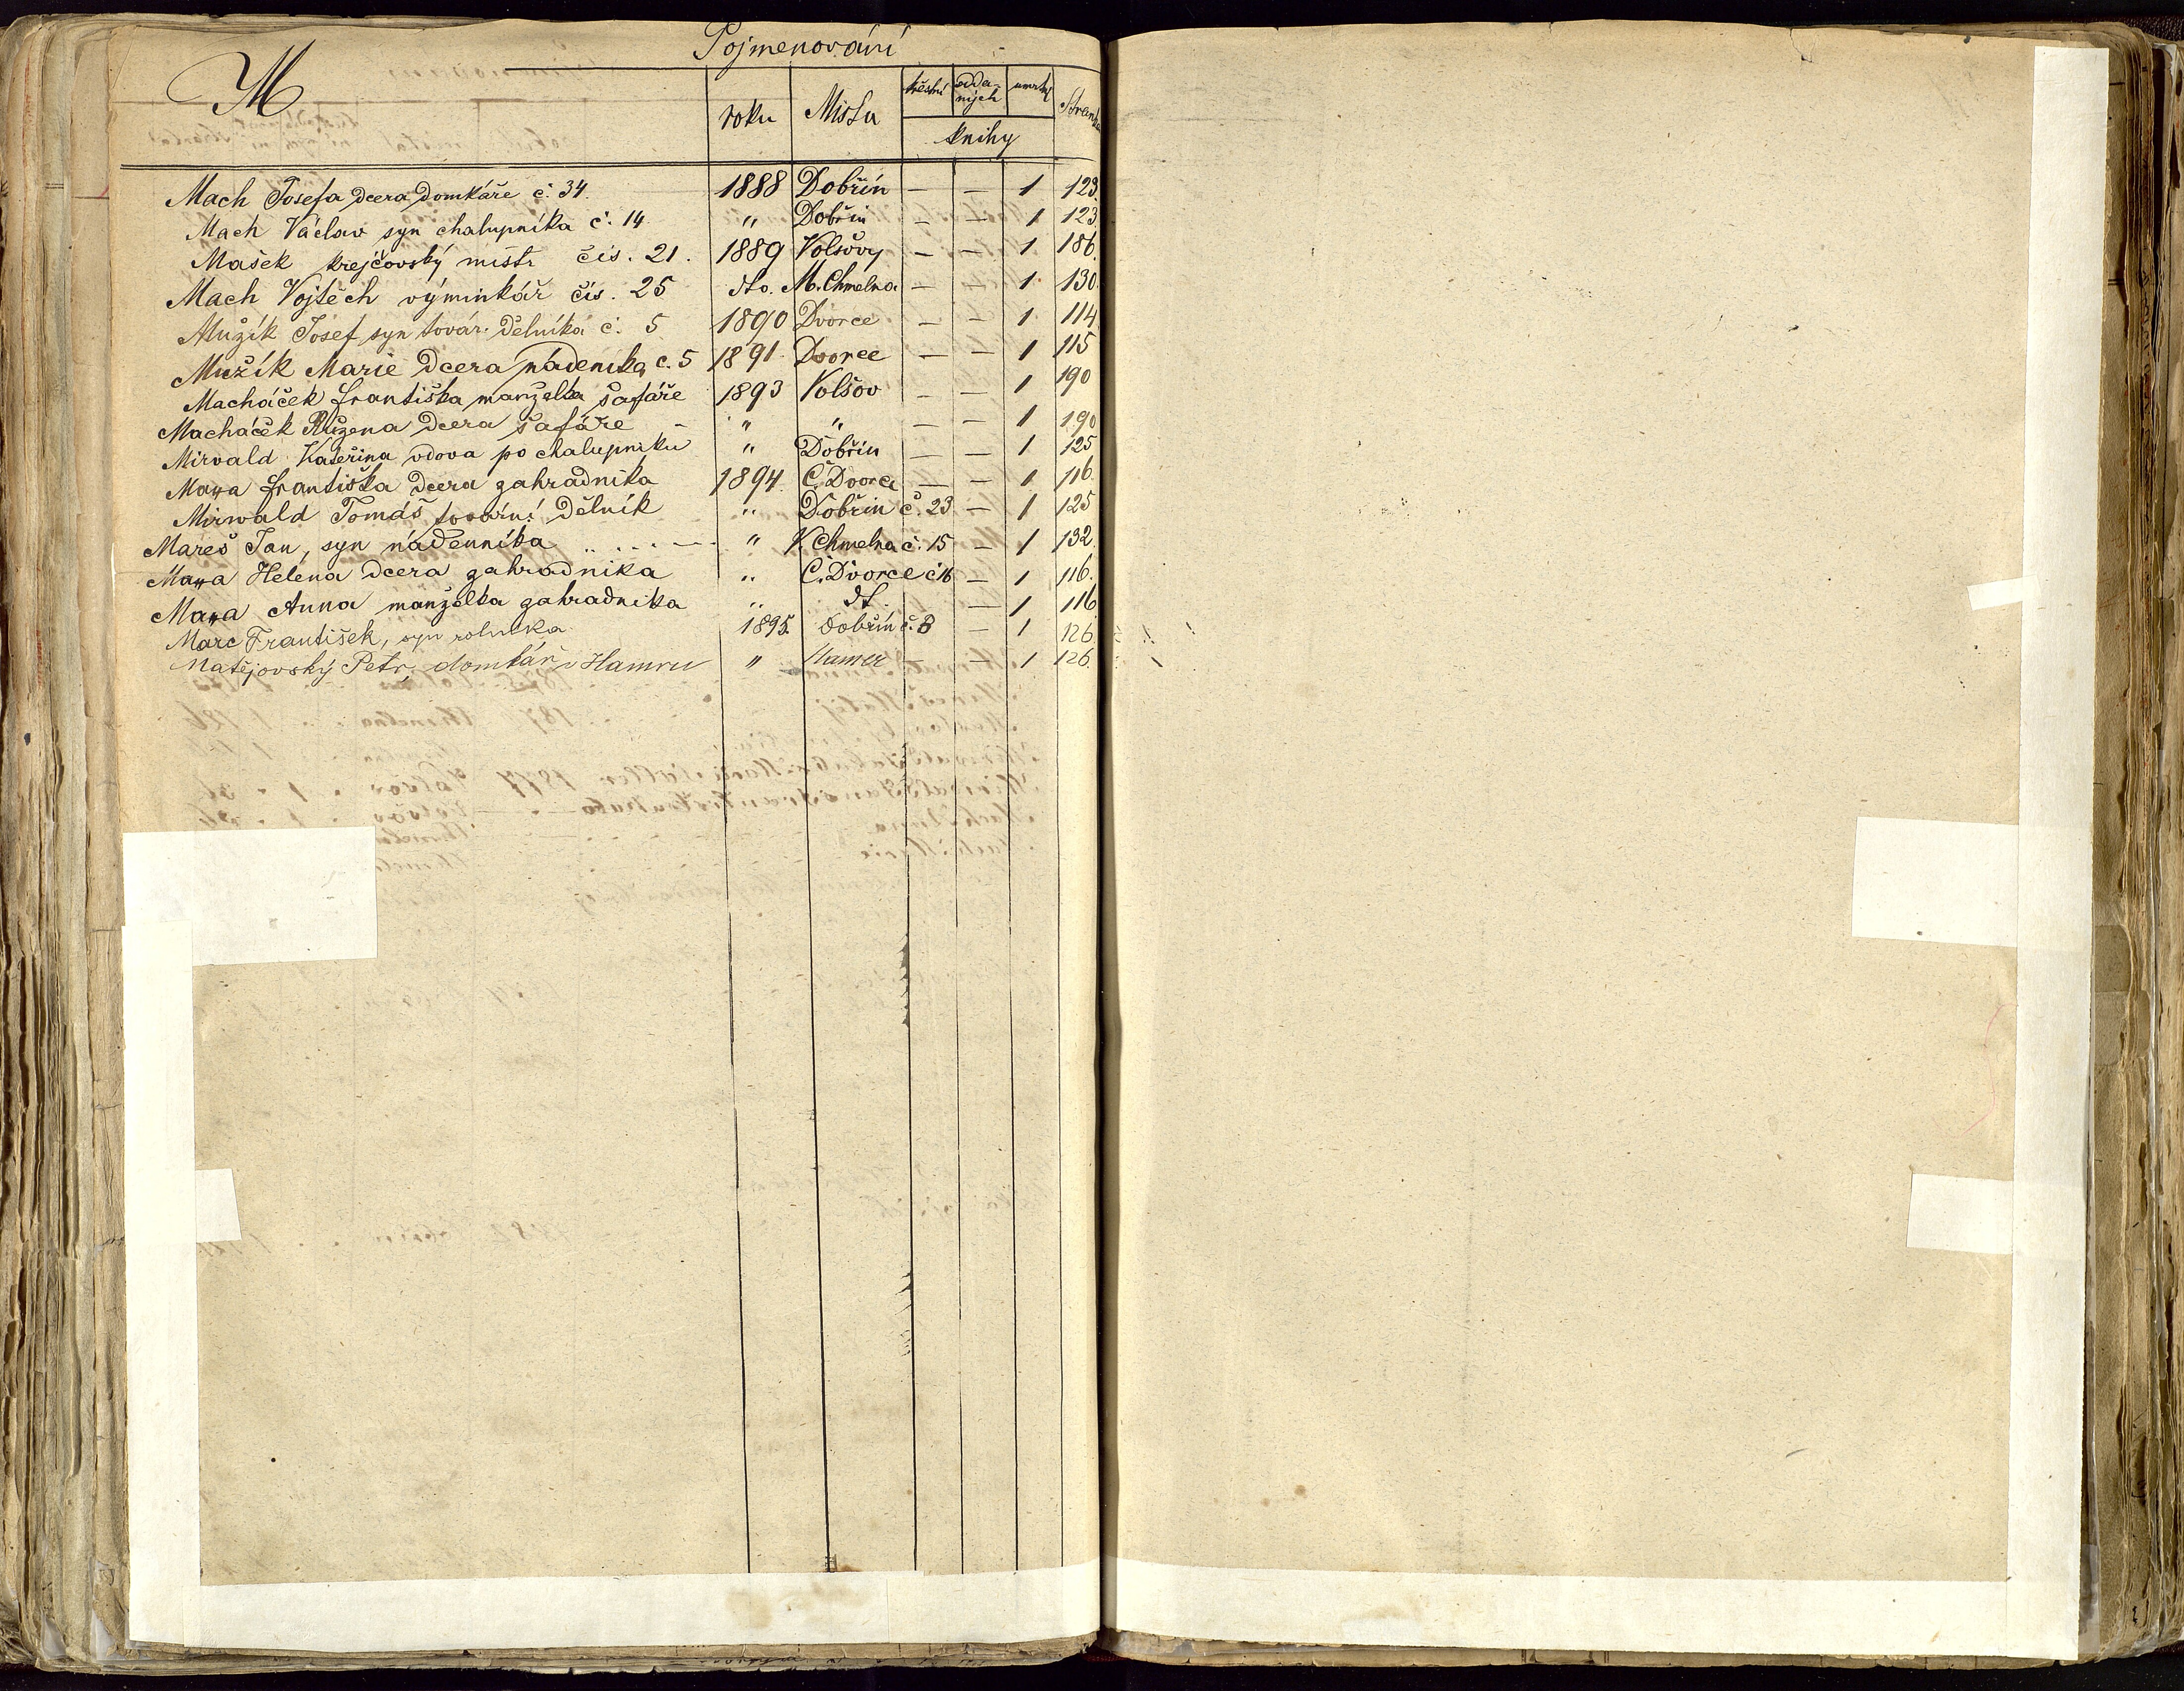 Pojmenování
M
roku Místa křestní odda-ných umrtní Stránka
knihy
Mach Josefa dcera domkáře č. 34. 1888 Dobřín — — 1 123.
Mach Václav syn chalupníka č. 14. " Dobřín — — 1 123
Mašek krejčovský mistr čís. 21. 1889 Volšovy — — 1 186.
Mach Vojtěch výminkář čís. 25 dto. M. Chmelna — — 1 130.
Mužík Josef syn továr. dělníka č. 5 1890 Dvorce — — 1 114
Mužík Marie dcera nádeníka č. 5 1891 Dvorce — — 1 115
Macháček Františka manželka šafáře 1893 Volšov — — 1 190
Macháček Růžena dcera šafáře " " — — 1 190
Mirvald Kateřina vdova po chalupníku " Dobřín — — 1 125
Františka dcera zahradníka 1894. Č. Dvorce — — 1 116.
Mirwald Tomáš tovární dělník " Dobřín č. 23 — 1 125
Mareš Jan, syn nádenníka " Chmelna č. 15 — 1 132.
Helena dcera zahradníka " Č. Dvorce č 16 — 1 116.
Anna manželka zahradníka " dt. — 1 116
Marc František, syn rolníka 1895. Dobřín č. 8 — 1 126.
Matějovský Petr, domkář v Hamru " Hamer — 1 126.